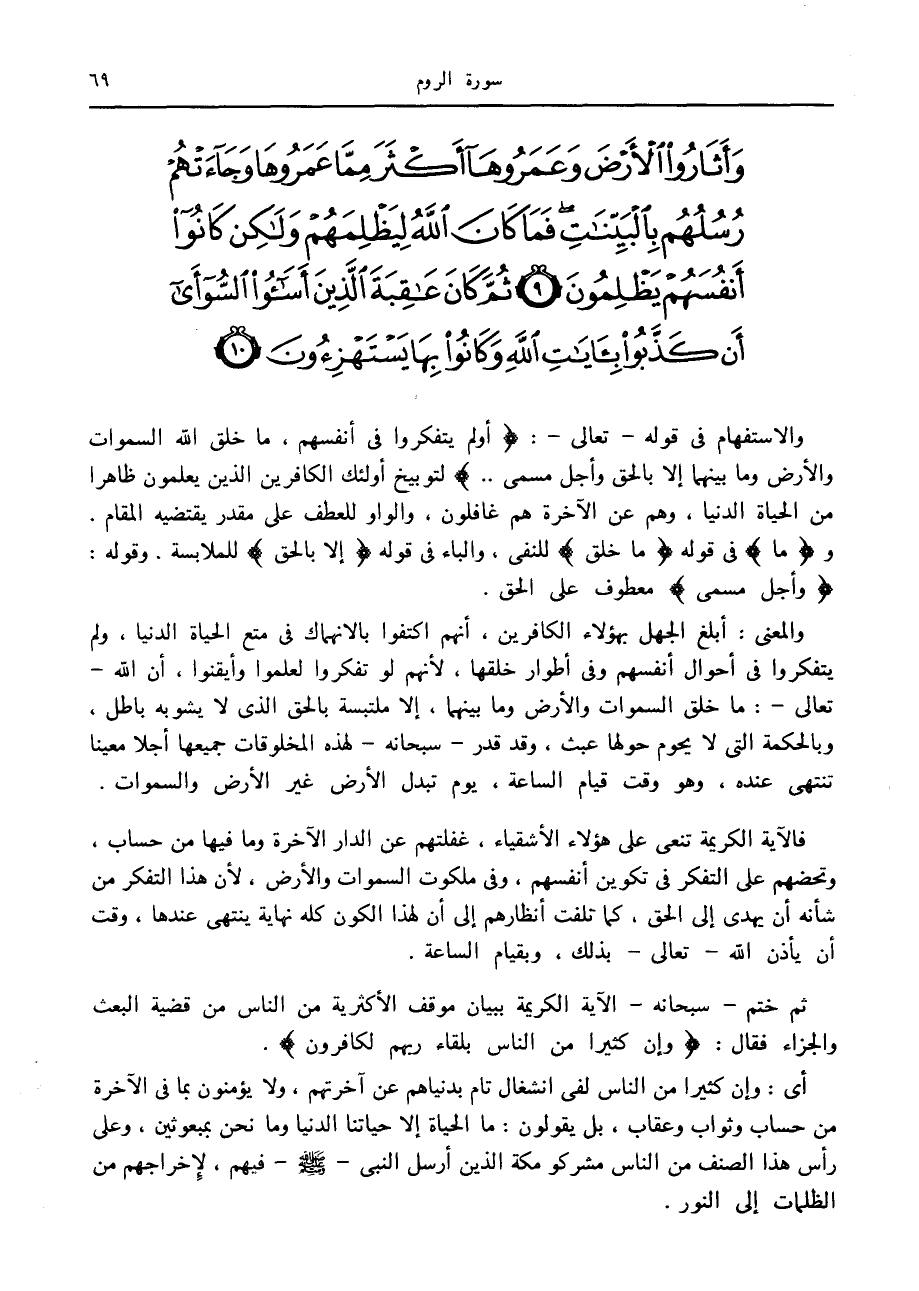 سورة الروم ٦٩
وَأَثَارُوا۟ ٱلْأَرْضَ وَعَمَرُوهَآ أَكْثَرَ مِمَّا عَمَرُوهَا وَجَآءَتْهُمْ
رُسُلُهُم بِٱلْبَيِّنَٰتِ ۖ فَمَا كَانَ ٱللَّهُ لِيَظْلِمَهُمْ وَلَٰكِن كَانُوٓا۟
أَنفُسَهُمْ يَظْلِمُونَ ٩ ثُمَّ كَانَ عَٰقِبَةَ ٱلَّذِينَ أَسَٰٓـُٔوا۟ ٱلسُّوٓأَىٰٓ
أَن كَذَّبُوا۟ بِـَٔايَٰتِ ٱللَّهِ وَكَانُوا۟ بِهَا يَسْتَهْزِءُونَ ١٠
والاستفهام فى قوله - تعالى - : ﴿ أولم يتفكروا فى أنفسهم ، ما خلق الله السموات
والأرض وما بينهما إلا بالحق وأجل مسمى .. ﴾ لتوبيخ أولئك الكافرين الذين يعلمون ظاهرا
من الحياة الدنيا ، وهم عن الآخرة هم غافلون ، والواو للعطف على مقدر يقتضيه المقام .
و ﴿ ما ﴾ فى قوله ﴿ ما خلق ﴾ للنفى ، والباء فى قوله ﴿ إلا بالحق ﴾ للملابسة . وقوله :
﴿ وأجل مسمى ﴾ معطوف على الحق .
والمعنى : أبلغ الجهل بهؤلاء الكافرين ، أنهم اكتفوا بالانهماك فى متع الحياة الدنيا ، ولم
يتفكروا فى أحوال أنفسهم وفى أطوار خلقها ، لأنهم لو تفكروا لعلموا وأيقنوا ، أن الله -
تعالى - : ما خلق السموات والأرض وما بينهما ، إلا ملتبسة بالحق الذى لا يشوبه باطل ،
وبالحكمة التى لا يحوم حولها عبث ، وقد قدر - سبحانه - لهذه المخلوقات جميعها أجلا معينا
تنتهى عنده ، وهو وقت قيام الساعة ، يوم تبدل الأرض غير الأرض والسموات .
فالآية الكريمة تنعى على هؤلاء الأشقياء ، غفلتهم عن الدار الآخرة وما فيها من حساب ،
وتحضهم على التفكر فى تكوين أنفسهم ، وفى ملكوت السموات والأرض ، لأن هذا التفكر من
شأنه أن يهدى إلى الحق ، كما تلفت أنظارهم إلى أن لهذا الكون كله نهاية ينتهى عندها ، وقت
أن يأذن الله - تعالى - بذلك ، وبقيام الساعة .
ثم ختم - سبحانه - الآية الكريمة ببيان موقف الأكثرية من الناس من قضية البعث
والجزاء فقال : ﴿ وإن كثيرا من الناس بلقاء ربهم لكافرون ﴾ .
أى : وإن كثيرا من الناس لفى انشغال تام بدنياهم عن آخرتهم ، ولا يؤمنون بما فى الآخرة
من حساب وثواب وعقاب ، بل يقولون : ما الحياة إلا حياتنا الدنيا وما نحن بمبعوثين ، وعلى
رأس هذا الصنف من الناس مشركو مكة الذين أرسل النبى - ﷺ - فيهم ، لإخراجهم من
الظلمات إلى النور .